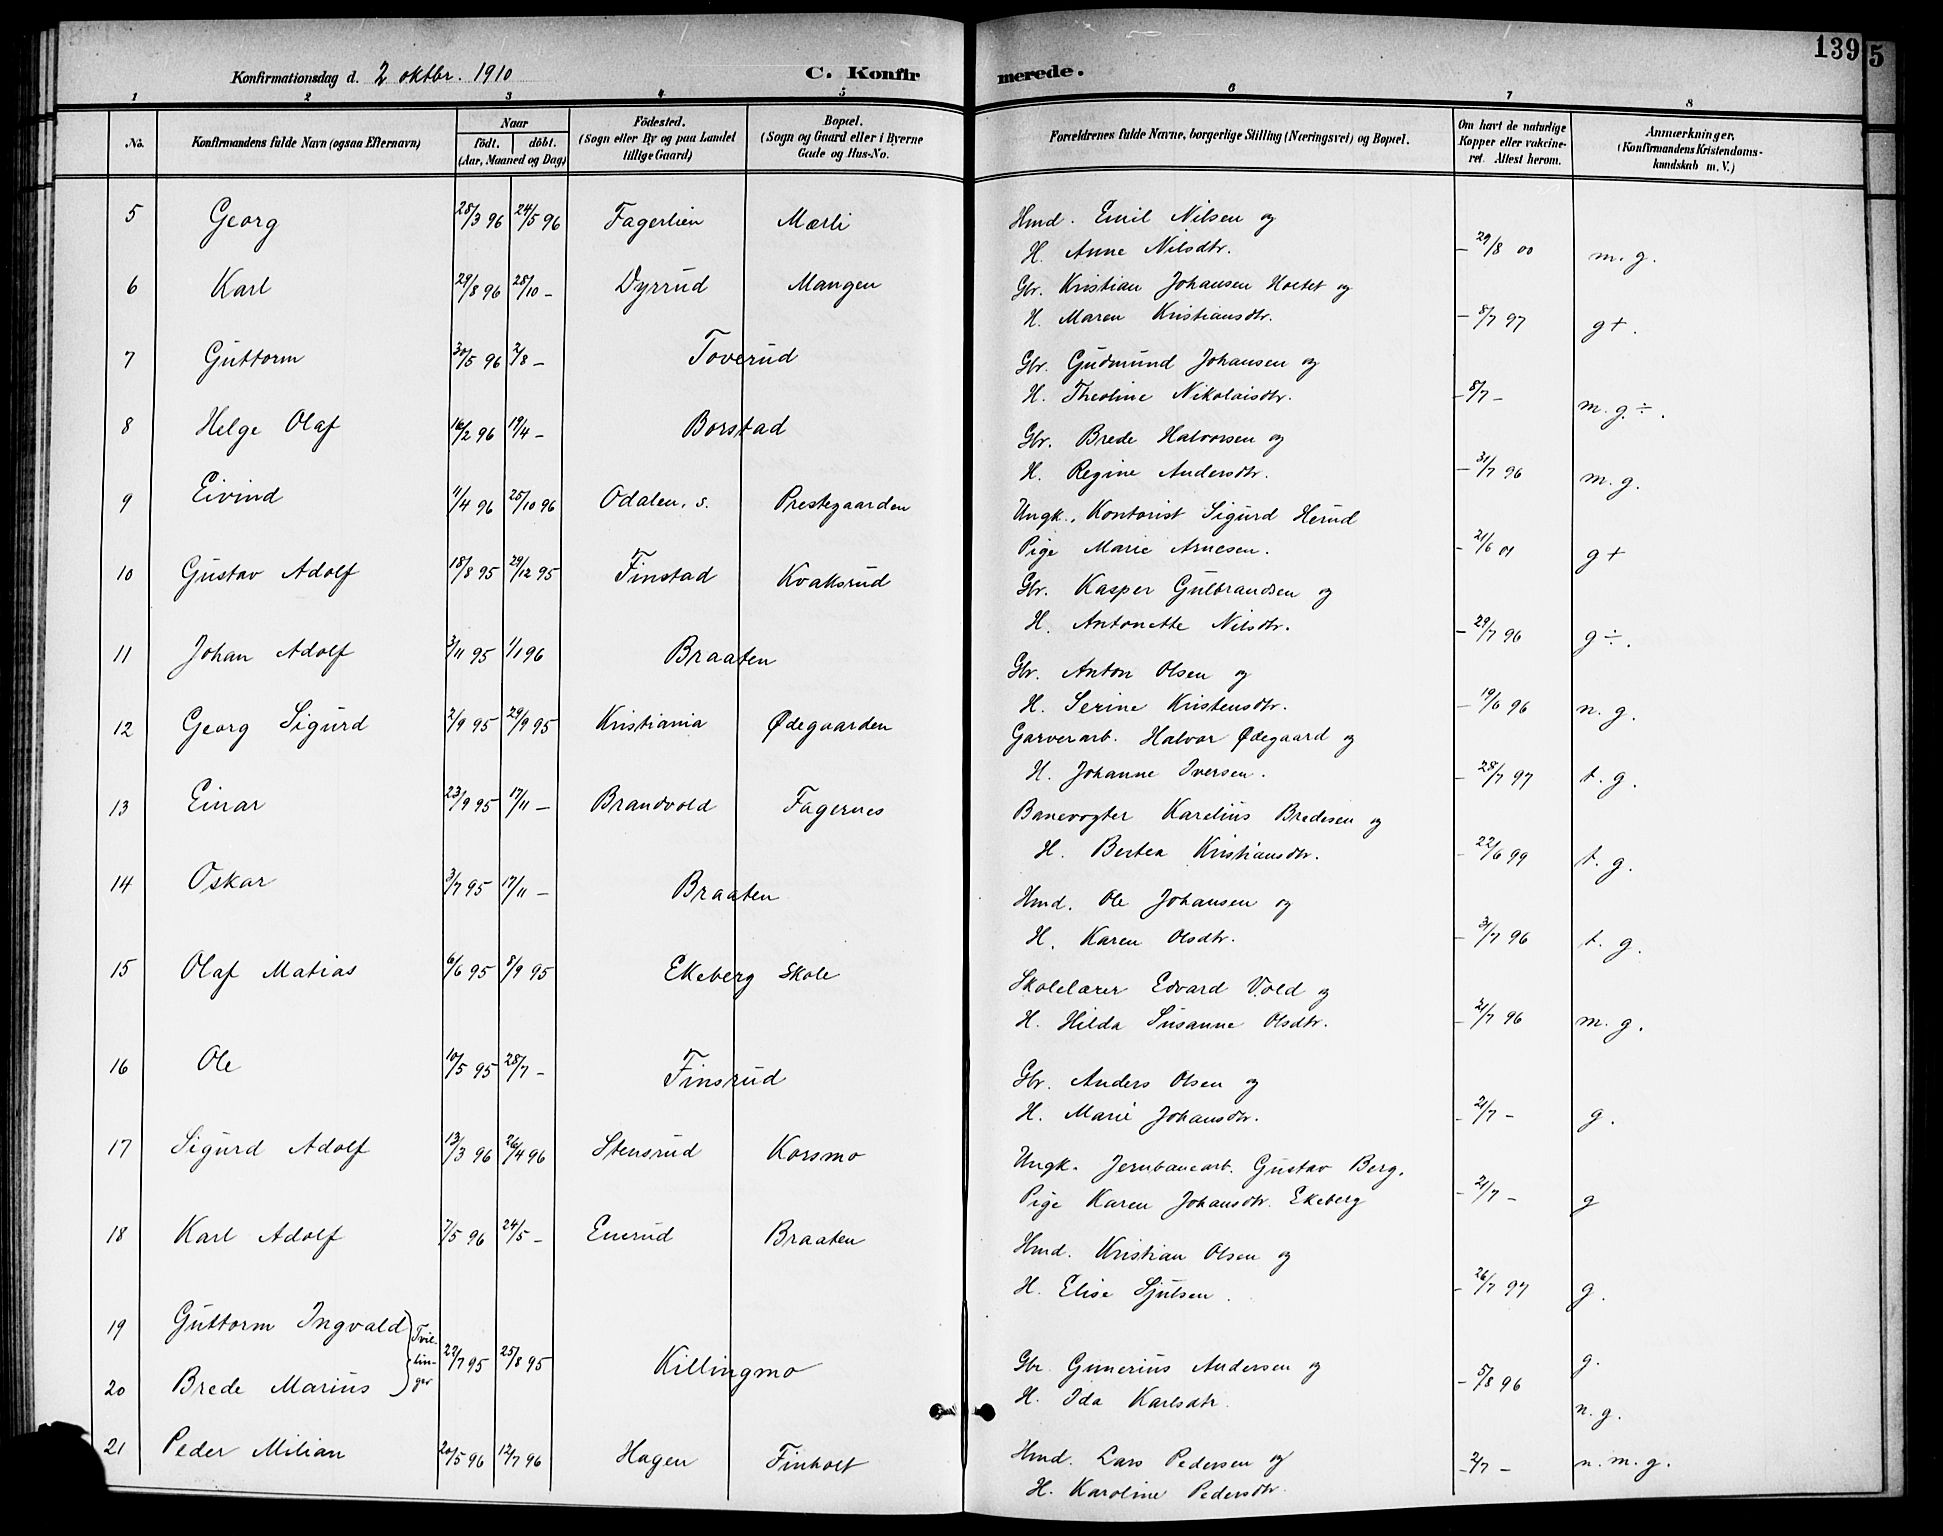 139
5
Konfirmationsdag d. 2 oktbr. 1910 C. Konfirmerede.
1 2 3 4 5 6 7 8
No. Konfirmandens fulde Navn (ogsaa Efternavn) Naar födt. döbt. (Aar, Maaned og Dag) Födested. (Sogn eller By og paa Landet tillige Gaard) Bopæl. (Sogn og Gaard eller i Byerne Gade og Hus-No. Forældrenes fulde Navne, borgerlige Stilling (Næringsvei) og Bopæl. Om havt de naturlige Kopper eller vakcineret. Attest herom. Anmærkninger, (Konfirmandens Kristendomskundskab m. V.)
5 Georg 28/3 96 24/5 96 Fagerlien Mærli Hmd. Emil Nilsen og
H. Anne Nilsdtr. – 29/8 00 m. g.
6 Karl 29/8 96 28/10 – Dyrrud Mangen Gbr. Kristian Johansen Holtet og
H. Maren Kristiansdtr. – 8/7 97 g+.
7 Guttorm 30/5 96 2/8 – Toverud Gbr. Gudmund Johansen og
H. Theoline Nikolaisdtr. – 8/7 – m. g ÷.
8 Helge Olaf 16/2 96 19/4 – Borstad Gbr. Brede Halvorsen og
H. Regine Andersdtr. – 31/7 96 m. g.
9 Eivind 11/4 96 25/10 96 Odalen, s. Prestegaarden Ungk., Kontorist Sigurd Herud
Pige Marie Arnesen. – 21/6 01 g +
10 Gustav Adolf 18/8 95 29/12 95 Finstad Kvaksrud Gbr. Kasper Gulbrandsen og
H. Antonette Nilsdtr. – 29/7 96 g ÷.
11 Johan Adolf 3/11 95 1/1 96 Braaten Gbr. Anton Olsen og
H. Serine Kristensdtr. – 19/6 96 n. g.
12 Georg Sigurd 2/9 95 29/9 95 Kristiania Ødegaarden Garverarb. Halvor Ødegaard og
H. Johanne Iversen. – 28/7 97 t. g.
13 Einar 23/9 95 17/11 – Brandvold Fagernes Banevogter Karelius Bredesen og
H. Bertea Kristiansdtr. – 22/6 99 t. g.
14 Oskar 3/7 95 17/11 – Braaten Hmd. Ole Johansen og
H. Karen Olsdtr. – 3/7 96 t. g.
15 Olaf Matias 6/6 95 8/9 95 Ekeberg Skole Skolelærer Edvard Vold og
H. Hilda Susanne Olsdtr. – 21/7 96 m. g.
16 Ole 10/5 95 28/7 – Finsrud Gbr. Anders Olsen og
H. Marie Johansdtr. – 21/7 – g.
17 Sigurd Adolf 13/3 96 26/4 96 Stensrud Korsmo Ungk. Jernbanearb. Gustav Berg.
Pige Karen Johansdtr. Ekeberg – 21/7 – g
18 Karl Adolf 7/5 96 24/5 – Enerud Braaten Hmd. Kristian Olsen og
H. Elise Sjulsen. – 26/7 97 g.
19 Guttorm Ingvald Tvillinger 22/7 95 25/8 95 Killingmo Gbr. Gunerius Andersen og g.
20 Brede Marius H. Ida Karlsdtr – 5/8 96 n. g.
21 Peder Milian 20/5 96 12/7 96 Hagen Finholt Hmd. Lars Pedersen og – 2/7 – n. m. g.
H. Karoline Pedersdtr.